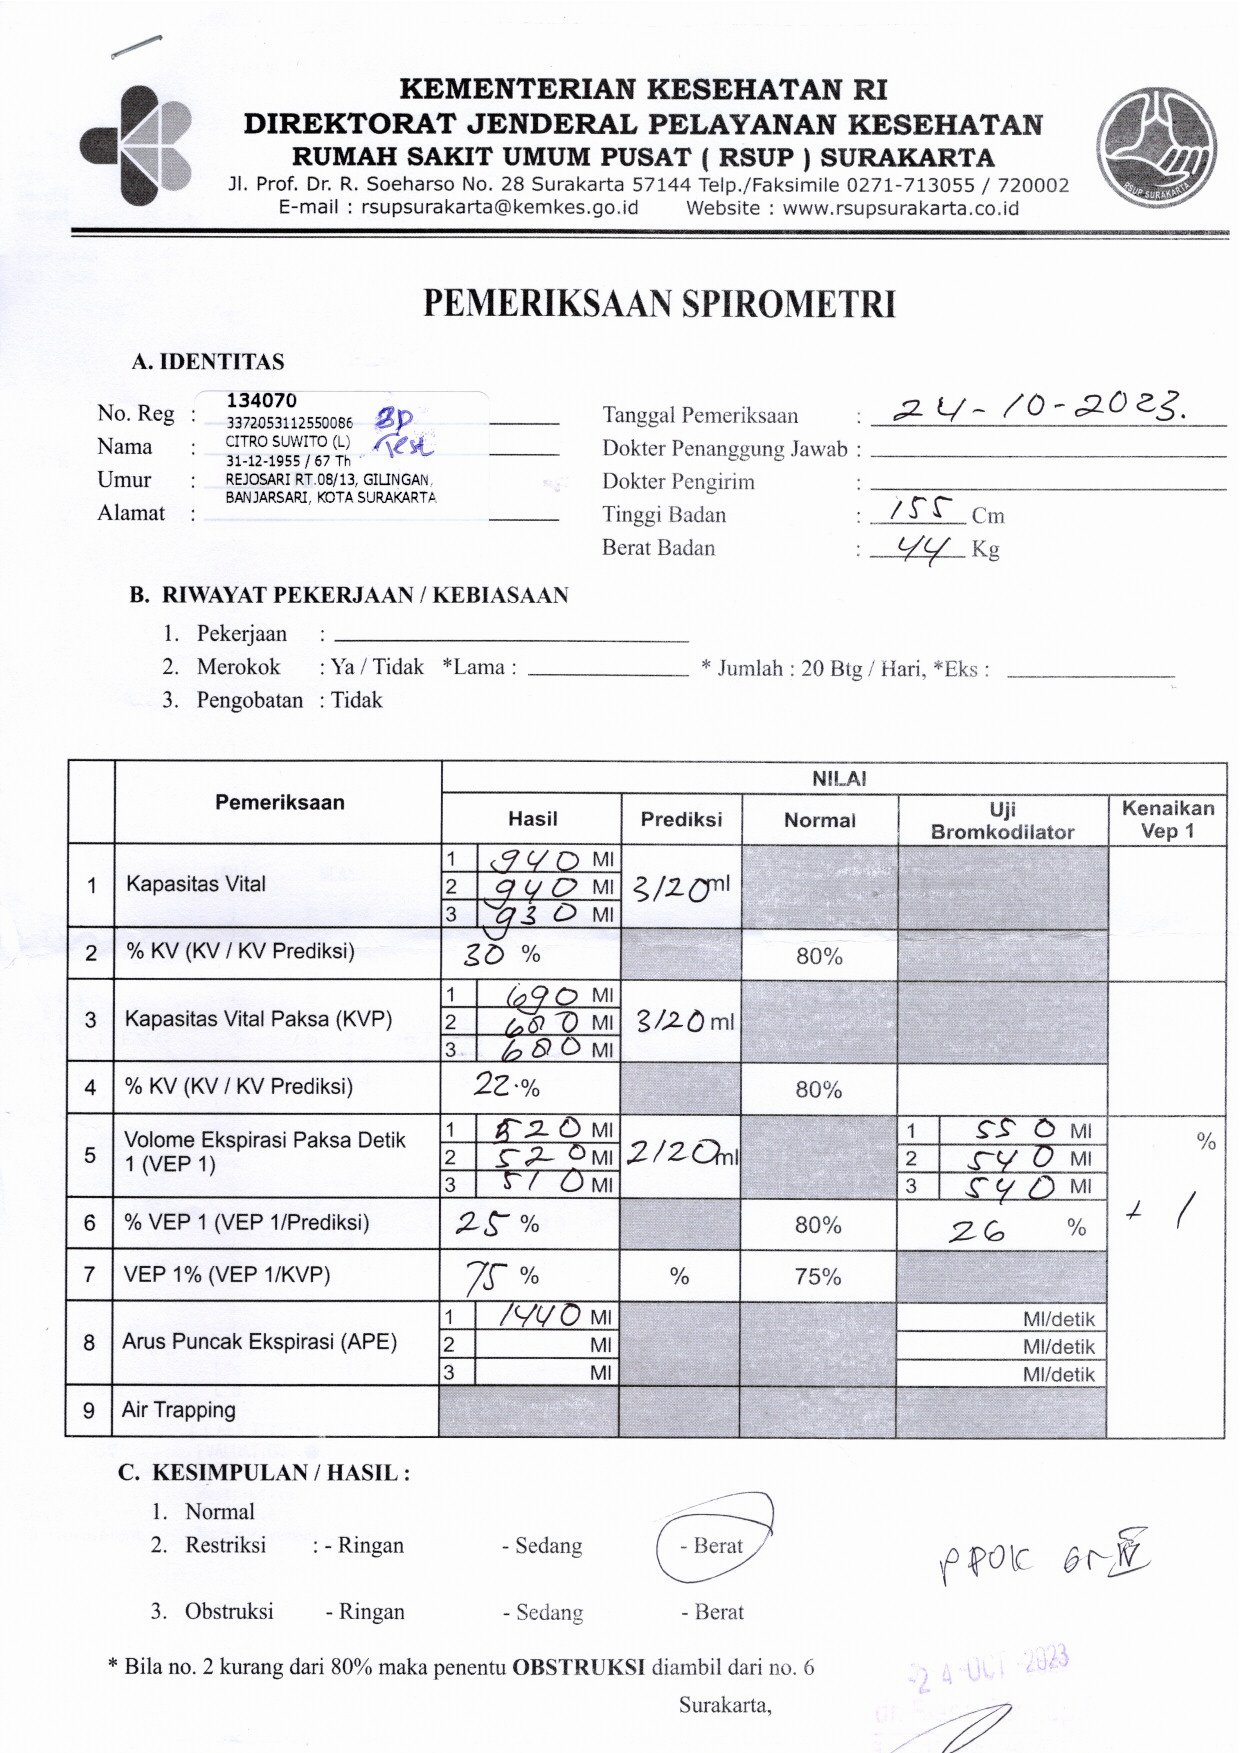 KEMENTERIAN KESEHATAN RI
DIREKTORAT JENDERAL PELAYANAN KESEHATAN
RUMAH SAKIT UMUM PUSAT ( RSUP ) SURAKARTA
Jl. Prof. Dr. R. Soeharso No. 28 Surakarta 57144 Telp./Faksimile 0271-713055 / 720002
E-mail : rsupsurakarta@kemkes.go.id Website : www.rsupsurakarta.co.id
RSUP SURAKARTA
PEMERIKSAAN SPIROMETRI
A. IDENTITAS
No. Reg : 134070
3372053112550086
Nama : CITRO SUWITO (L)
BD Test
Umur : 31-12-1955 / 67 Th
Alamat : REJOSARI RT.08/13, GILINGAN,
BANJARSARI, KOTA SURAKARTA
Tanggal Pemeriksaan : 24-10-2023.
Dokter Penanggung Jawab :
Dokter Pengirim :
Tinggi Badan : 155 Cm
Berat Badan : 44 Kg
B. RIWAYAT PEKERJAAN / KEBIASAAN
1. Pekerjaan :
2. Merokok : Ya / Tidak *Lama : * Jumlah : 20 Btg / Hari, *Eks :
3. Pengobatan : Tidak
Pemeriksaan NILAI
Hasil Prediksi Normal Uji Bromkodilator Kenaikan Vep 1
1 Kapasitas Vital 1 940 Ml 3120 ml
2 940 Ml
3 930 Ml
2 % KV (KV / KV Prediksi) 30 % 80%
3 Kapasitas Vital Paksa (KVP) 1 690 Ml 3120 ml
2 680 Ml
3 680 Ml
4 % KV (KV / KV Prediksi) 22 % 80%
5 Volome Ekspirasi Paksa Detik 1 (VEP 1) 1 520 Ml 2120 ml 1 550 Ml %
2 520 Ml 2 540 Ml
3 510 Ml 3 540 Ml
6 % VEP 1 (VEP 1/Prediksi) 25 % 80% 26 % + 1
7 VEP 1% (VEP 1/KVP) 75 % % 75%
8 Arus Puncak Ekspirasi (APE) 1 1440 Ml Ml/detik
2 Ml Ml/detik
3 Ml Ml/detik
9 Air Trapping
C. KESIMPULAN / HASIL :
1. Normal
2. Restriksi : - Ringan - Sedang - Berat
PPOK Gr IV
3. Obstruksi - Ringan - Sedang - Berat
* Bila no. 2 kurang dari 80% maka penentu OBSTRUKSI diambil dari no. 6
24 OCT 2023
Surakarta,